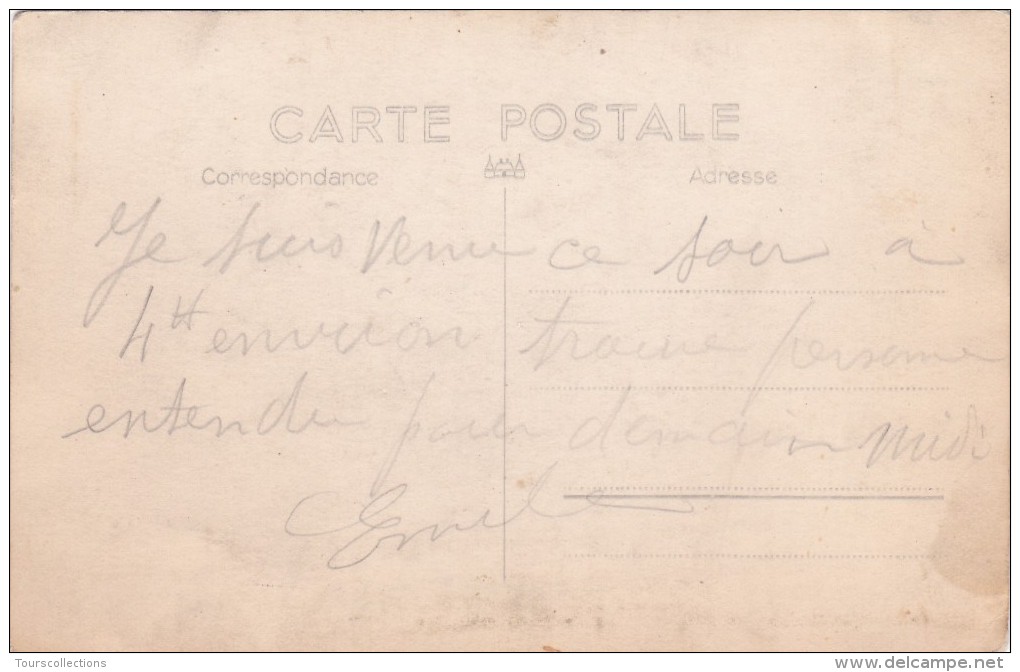 CARTE POSTALE
Correspondance Adresse
Je suis venu ce soir à
4H environ trouvé personne
entendu pour demain midi
Emile
Tourscollections
www.delcampe.net